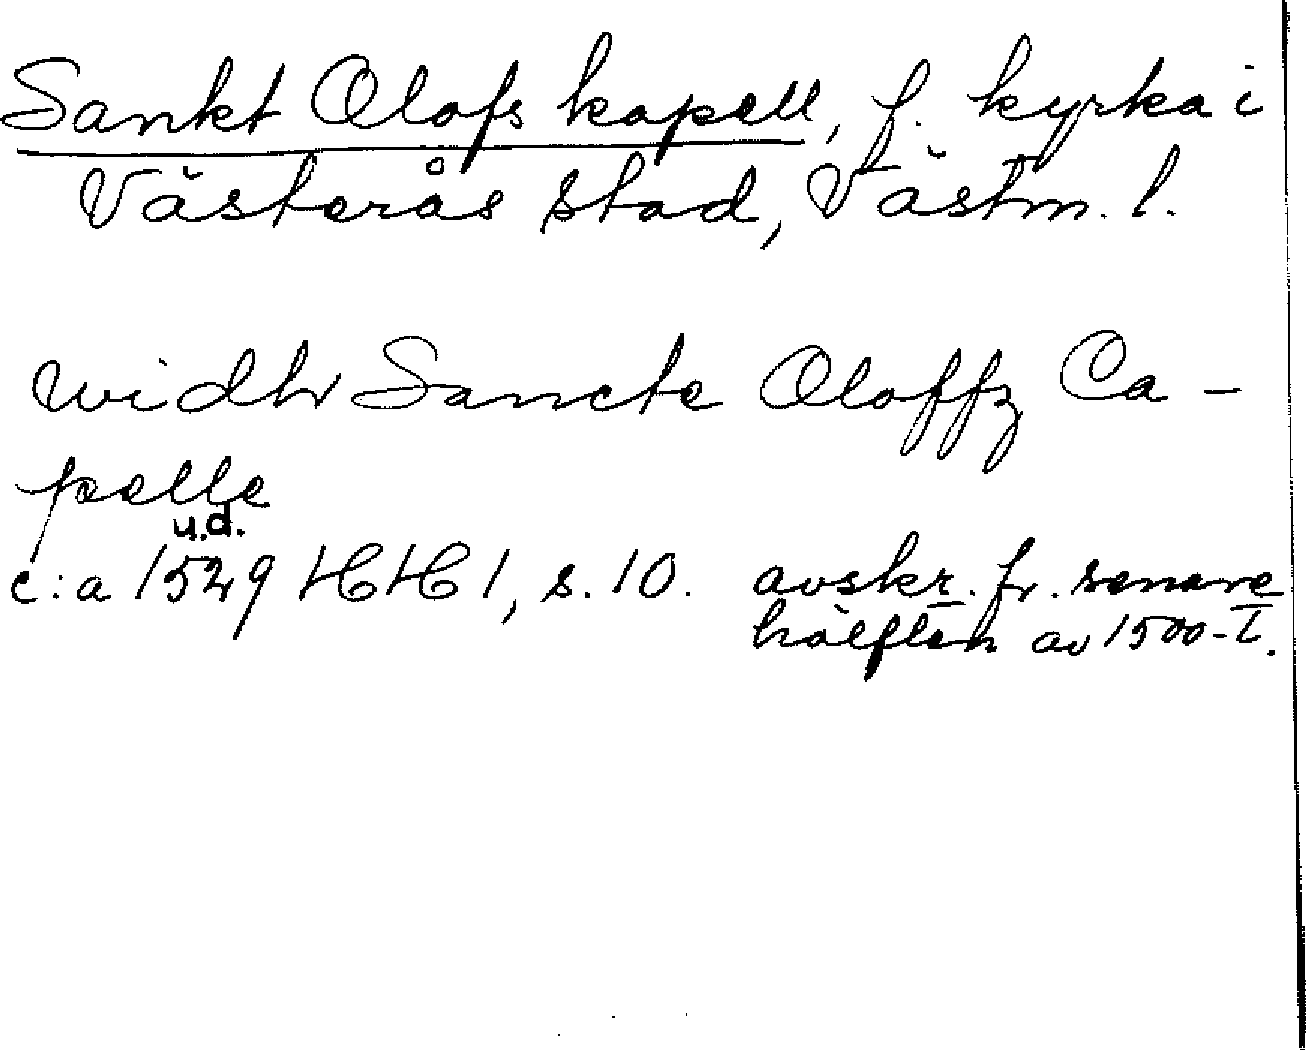 Sankt Olofs kapell, f. kyrka i
Västerås stad, Västm. l.
widh Sancte Oloffz Ca-
pelle
u.d.
c:a 1529 HH 1, s. 10. avskr. fr. senare
hälften av 1500-T.